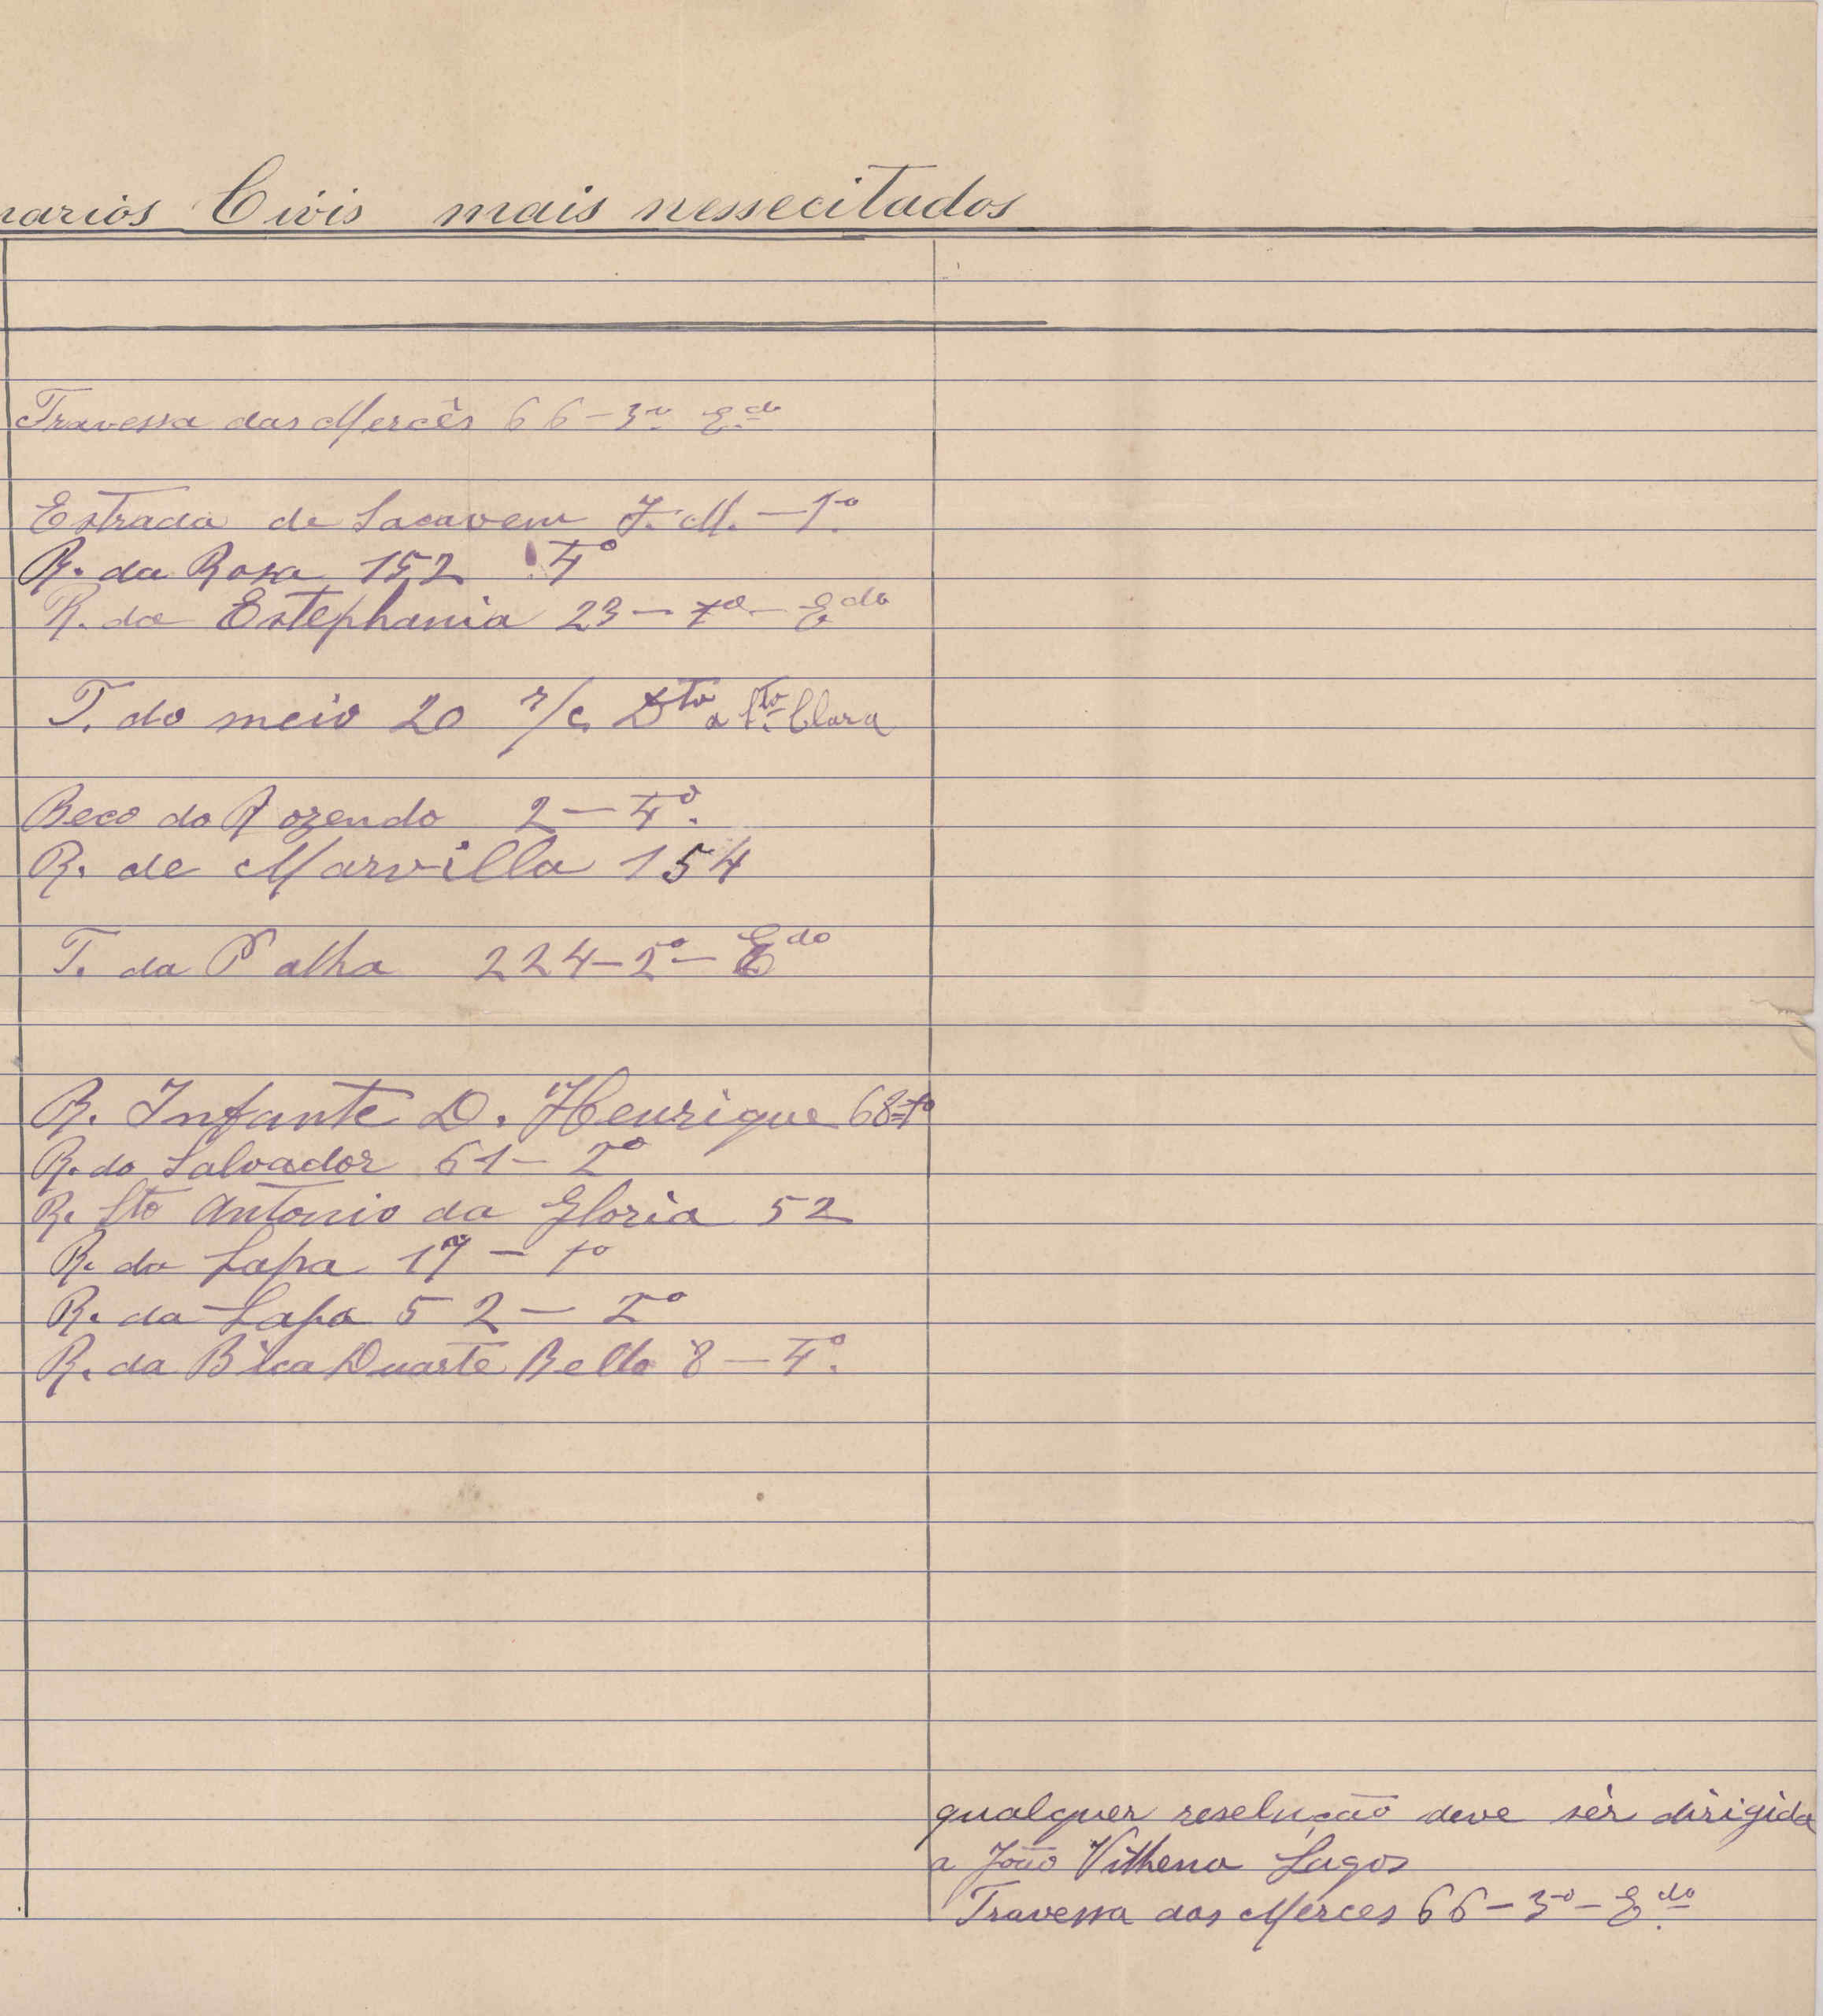 narios Civis mais nessecitados
Travessa das Mercês 66-3º Edo
Estrada de Sacavem J. M. - 1º
R. da Rosa 152 4º
R. da Estephania 23 - 1º - Edo
T. do meio 20 r/c Dto a Sta Clara
Beco do Rozendo 2 - 4º
R. de Marvilla 154
T. da Palha 224 - 2º - Edo
R. Infante D. Henrique 68-1º
R. do Salvador 61 - 2º
R. Sto Antonio da Gloria 52
R. da Lapa 17 - 1º
R. da Lapa 52 - 2º
R. da Bica Duarte Bello 8 - 4º
qualquer reselução deve sêr dirigida
a João Vilhena Lagos
Travessa das Merces 66 - 3º - Edo